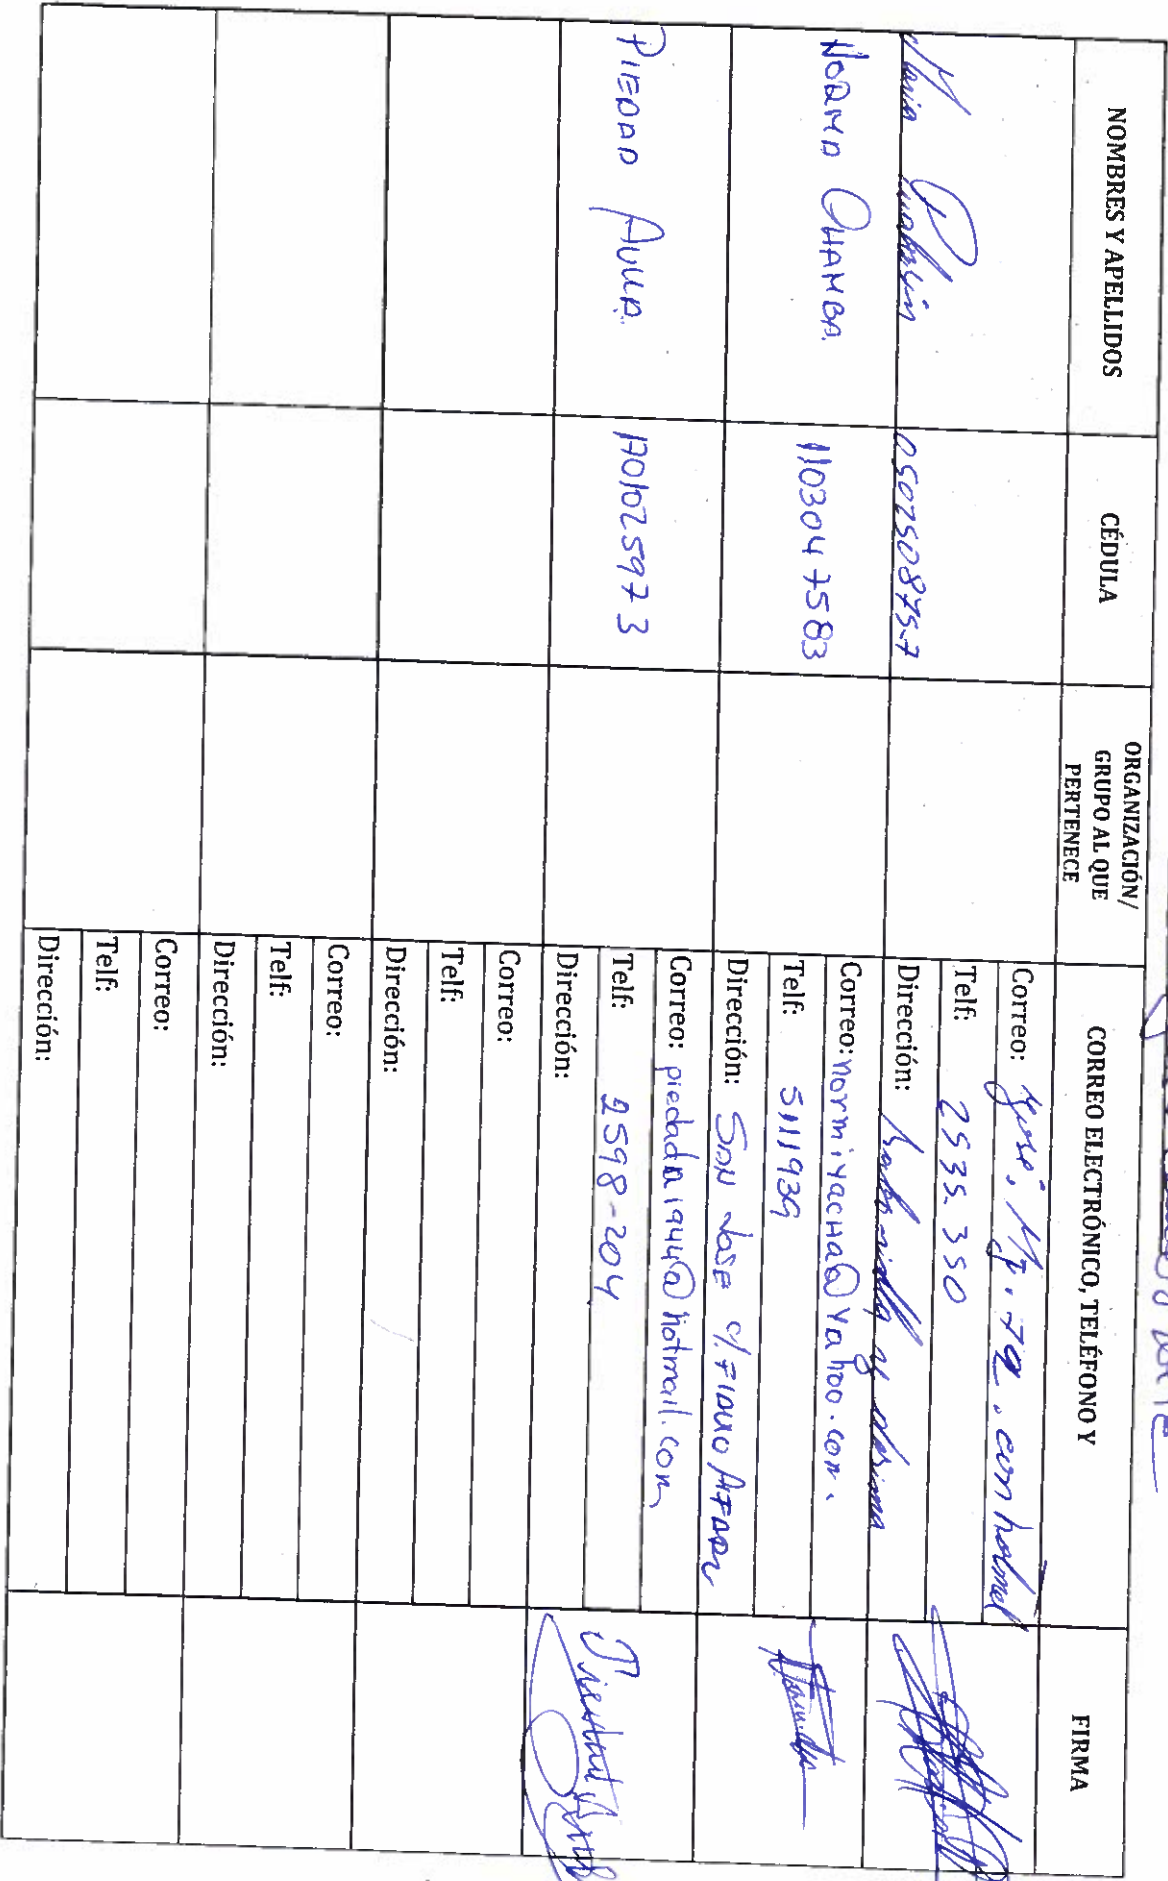 NOMBRES Y APELLIDOS
CÉDULA
ORGANIZACIÓN/
GRUPO AL QUE
PERTENECE
CORREO ELECTRÓNICO, TELÉFONO Y
FIRMA
Maria
050750875-7
Correo:
Telf: 2535-350
Dirección: y
NORMA CHAMBA
1103047583
Correo: normiyacha@Yahoo.com.
Telf: 5111939
Dirección: SAN JOSE c/
PIEDAD AVILA
170102597 3
Correo: piedada1944@hotmail.com
Telf: 2598-204
Dirección:
Correo:
Telf:
Dirección:
Correo:
Telf:
Dirección:
Correo:
Telf:
Dirección: